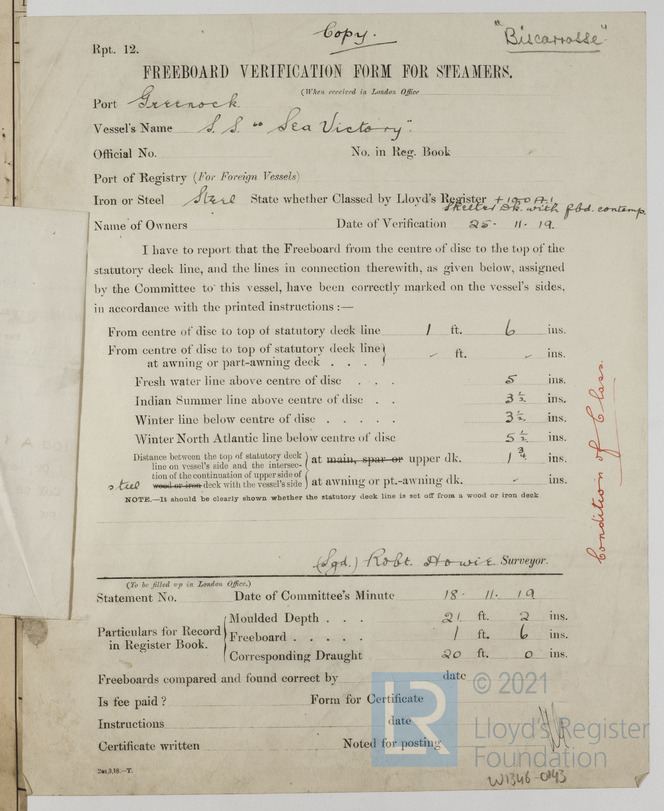 Copy.
"Biscarrosse"
Rpt. 12.
FREEBOARD VERIFICATION FORM FOR STEAMERS.
(When received in London Office
Port Greenock.
Vessel's Name S.S. "Sea Victory".
Official No. No. in Reg. Book
Port of Registry (For Foreign Vessels)
Iron or Steel Steel State whether Classed by Lloyd's Register +100A1
Shelter Dk. with fbd. contemp.
Name of Owners Date of Verification 25. 11. 19.
I have to report that the Freeboard from the centre of disc to the top of the
statutory deck line, and the lines in connection therewith, as given below, assigned
by the Committee to this vessel, have been correctly marked on the vessel's sides,
in accordance with the printed instructions :—
From centre of disc to top of statutory deck line 1 ft. 6 ins.
From centre of disc to top of statutory deck line
at awning or part-awning deck . . . - ft. - ins.
Fresh water line above centre of disc . . . 5 ins.
Indian Summer line above centre of disc . . 3 1/2 ins.
Winter line below centre of disc . . . . . 3 1/2 ins.
Winter North Atlantic line below centre of disc 5 1/2 ins.
Distance between the top of statutory deck
line on vessel's side and the intersec-
tion of the continuation of upper side of
steel wood or iron deck with the vessel's side
at main, spar or upper dk. 1 3/4 ins.
at awning or pt.-awning dk. - ins.
NOTE.—It should be clearly shown whether the statutory deck line is set off from a wood or iron deck
Condition of Class.
(Sgd.) Robt. Howie Surveyor.
(To be filled up in London Office.)
Statement No. Date of Committee's Minute 18. 11. 19
Particulars for Record
in Register Book.
Moulded Depth . . . 21 ft. 2 ins.
Freeboard . . . . . 1 ft. 6 ins.
Corresponding Draught 20 ft. 0 ins.
Freeboards compared and found correct by date
Is fee paid ? Form for Certificate
Instructions date
Certificate written Noted for posting
2m,3,18.—T.
LR
© 2021
Lloyd's Register
Foundation
W1346-0143